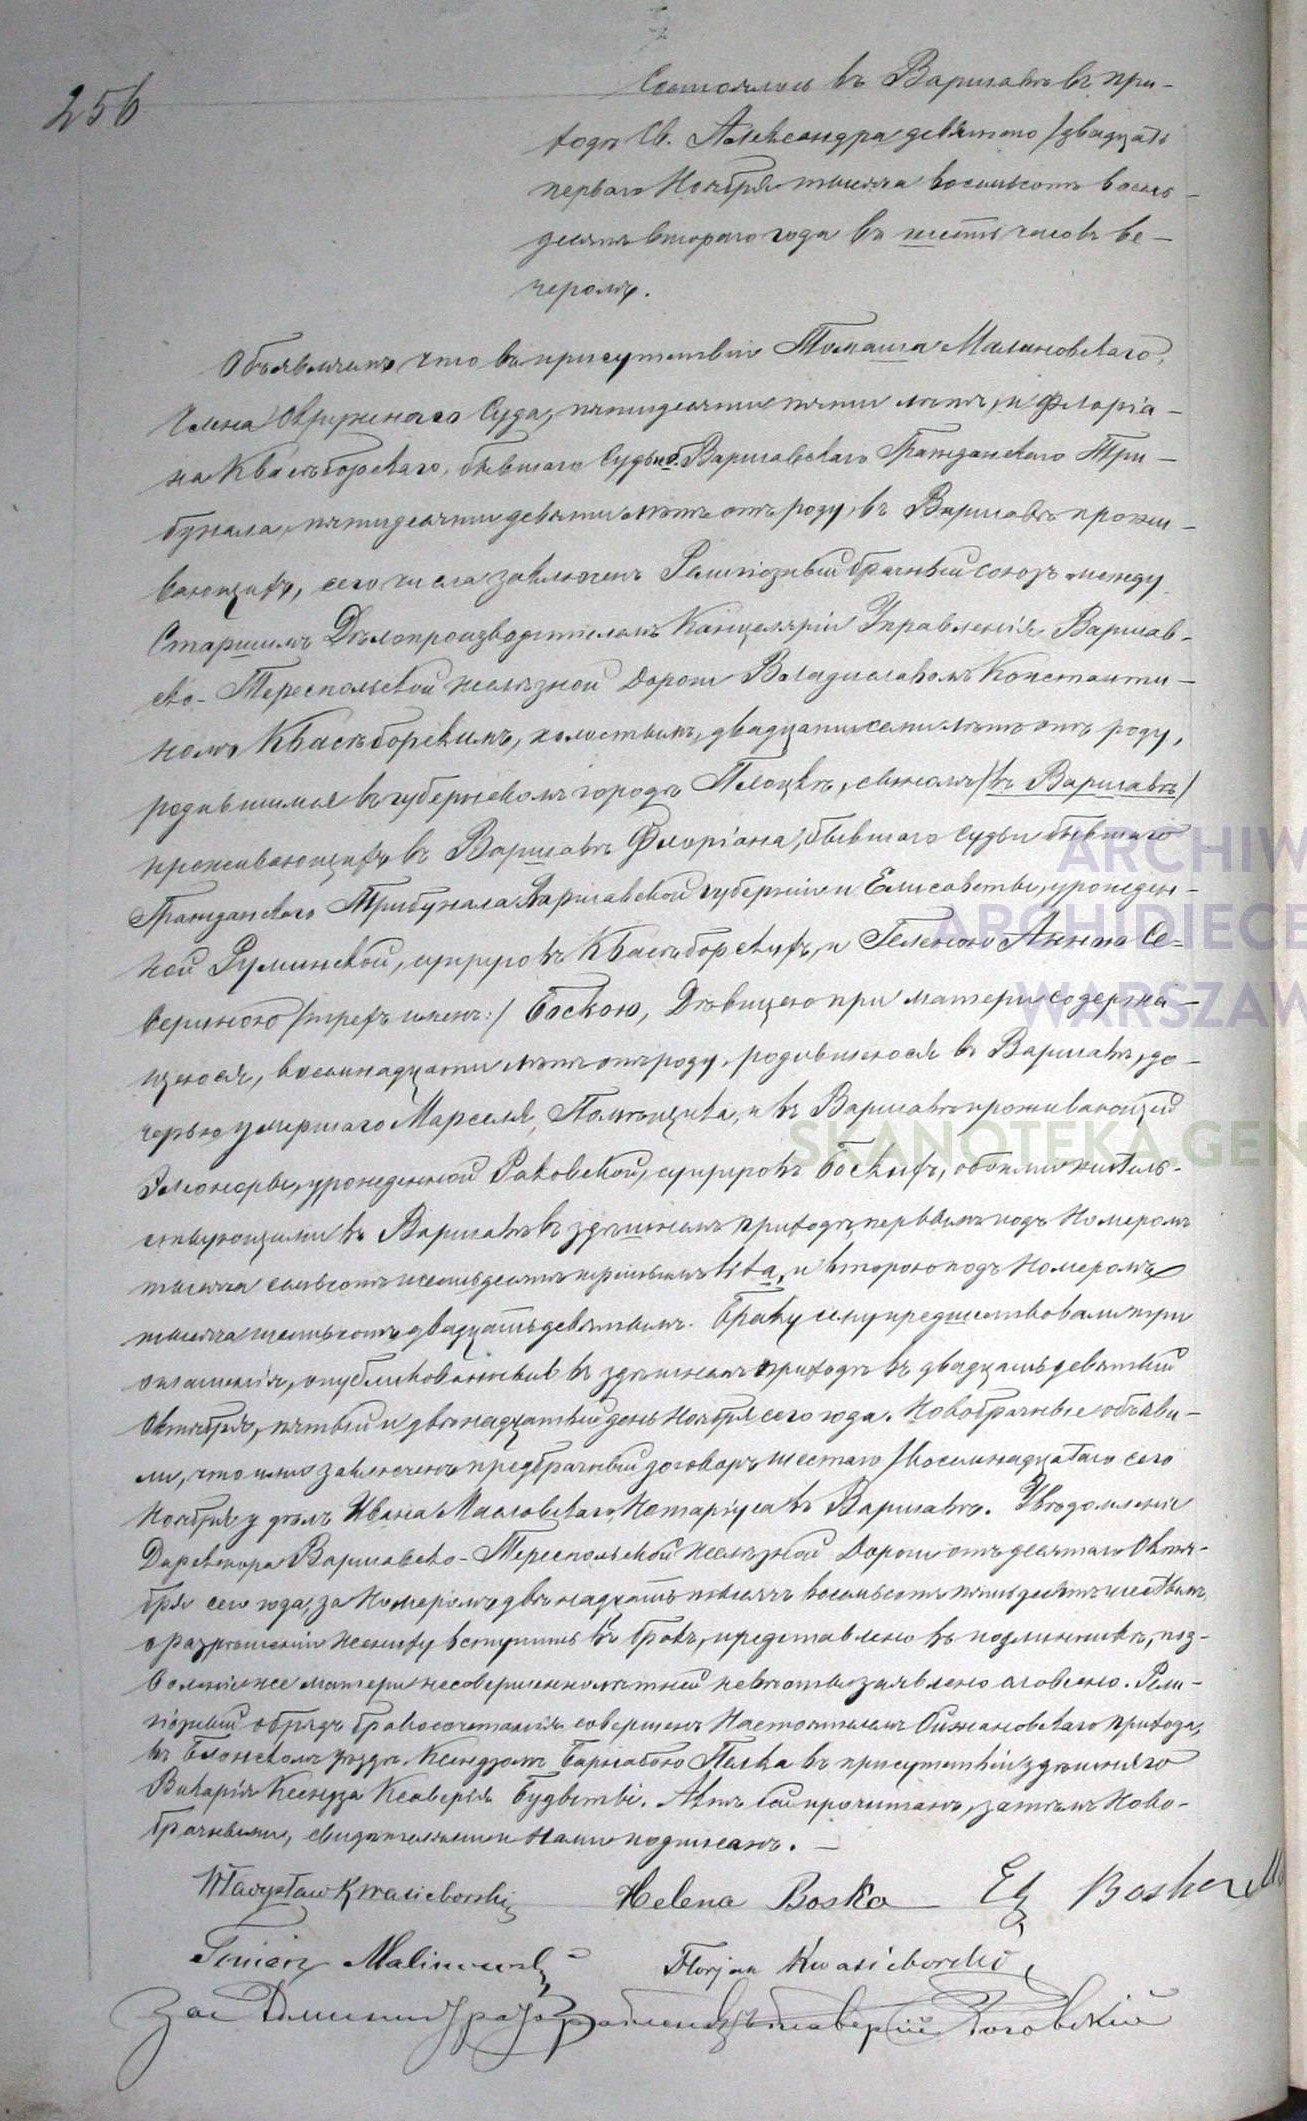 256
Состоялось въ Варшавѣ въ при-
ходѣ Св. Александра девятаго /двадцать
перваго Ноября тысяча восемьсотъ восемь-
десятъ втораго года въ шесть часовъ ве-
черомъ.
Объявляемъ что въ присутствіи Томаша Малиновскаго,
Члена Окружнаго Суда, пятидесяти пяти лѣтъ, и Флоріа-
на Квасѣборскаго, бывшаго Судьи б. Варшавскаго Гражданскаго Три-
бунала, пятидесяти девяти лѣтъ отъ роду, въ Варшавѣ прожи-
вающихъ, сего числа заключенъ Религіозный брачный союзъ между
Старшимъ Дѣлопроизводителемъ Канцеляріи Управленія Варшав-
ско-Тереспольской желѣзной дороги Владиславомъ Константи-
номъ Квасѣборскимъ, холостымъ, двадцати семи лѣтъ отъ роду,
родившимся въ губернскомъ городѣ Плоцкѣ, сыномъ /въ Варшавѣ/
проживающихъ въ Варшавѣ Флоріана, бывшаго судьи бывшаго
Гражданскаго Трибунала Варшавской губерніи и Елисаветы, урожден-
ной Руминской, супруговъ Квасѣборскихъ, и Геленою Анною Се-
вериною /трехъ именъ:/ Боскою, Дѣвицею при матери содержа-
щеюся, восемнадцати лѣтъ отъ роду, родившеюся въ Варшавѣ, до-
черью умершаго Марселя, Помѣщика, и въ Варшавѣ проживающей
Элеоноры, урожденной Раковской, супруговъ Боскихъ, обоими жительс-
ствующими въ Варшавѣ въ здѣшнемъ приходѣ, первымъ подъ Номеромъ
тысяча семьсотъ семьдесятъ третьимъ lit a, и второю подъ Номеромъ
тысяча шестьсотъ двадцать девятымъ. Браку сему предшествовали три
оглашенія, опубликованныя въ здѣшнемъ приходѣ въ двадцать девятый
Октября, пятый и двѣнадцатый день Ноября сего года. Новобрачные объяви-
ли, что ими заключенъ предбрачный договоръ шестаго /восемнадцатаго сего
Ноября у дѣлъ Ивана Масловскаго, Нотаріуса въ Варшавѣ. Увѣдомленіе
Директора Варшавско-Тереспольской Желѣзной Дороги отъ десятаго Октя-
бря сего года, за Номеромъ двѣнадцать тысячъ восемьсотъ пятьдесятъ шестымъ,
о разрѣшеніи жениху вступить въ бракъ, представлено въ подлинникѣ, поз-
воленіе же матери несовершеннолѣтней невѣсты заявлено словесно. Рели-
гіозный обрядъ бракосочетанія совершенъ Настоятелемъ Ойжановскаго прихода,
въ Блонскомъ уѣздѣ Ксендзомъ Барнабою Пелка въ присутствіи здѣшняго
Викарія Ксендза Ксаверія Будвитъ. Актъ сей прочитанъ, затѣмъ Ново-
брачными, свидѣтелями и Нами подписанъ. —
Władysław Kwasieborski Helena Boska El Boska
Tomasz Malinowski Florjan Kwasieborski